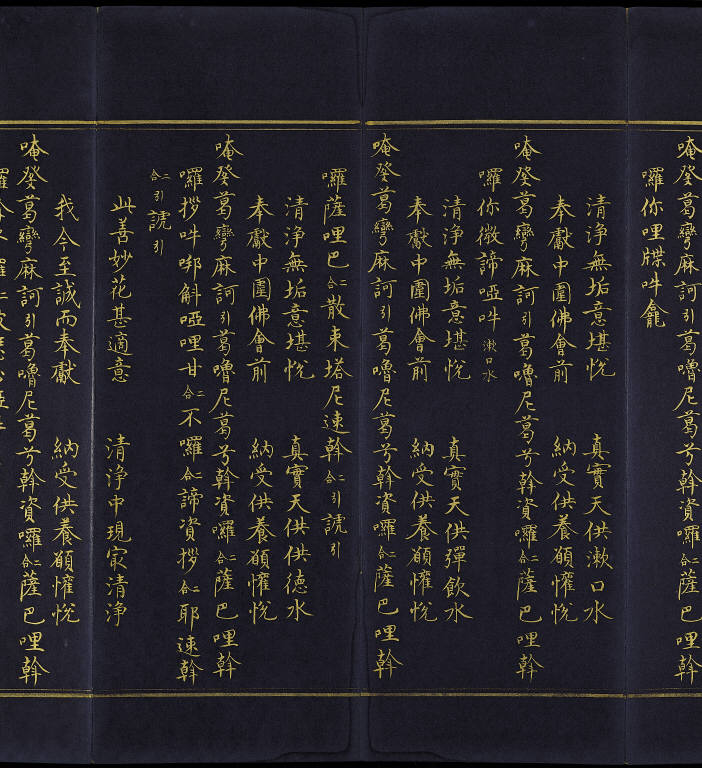 唵癸葛彎麻訶引葛嚕尼葛兮斡資囉二合薩巴哩斡
囉你哩牒吽龕
清淨無垢意堪悅 真實天供漱口水
奉獻中圍佛會前 納受供養願懽悅
唵癸葛彎麻訶引葛嚕尼葛兮斡資囉二合薩巴哩斡
囉你微諦啞吽漱口水
清淨無垢意堪悅 真實天供彈飲水
奉獻中圍佛會前 納受供養願懽悅
唵癸葛彎麻訶引葛嚕尼葛兮斡資囉二合薩巴哩斡
囉薩哩巴二合散東塔尼速斡二合引諕引
清淨無垢意堪悅 真實天供供德水
奉獻中圍佛會前 納受供養願懽悅
唵癸葛彎麻訶引葛嚕尼葛兮斡資囉二合薩巴哩斡
囉拶吽㘄斛啞哩甘二合不囉二合諦資拶二合耶速斡
二合引諕引
此善妙花甚適意 清淨中現家清淨
我今至誠而奉獻 納受供養願懽悅
唵癸葛彎麻訶引葛嚕尼葛兮斡資囉二合薩巴哩斡